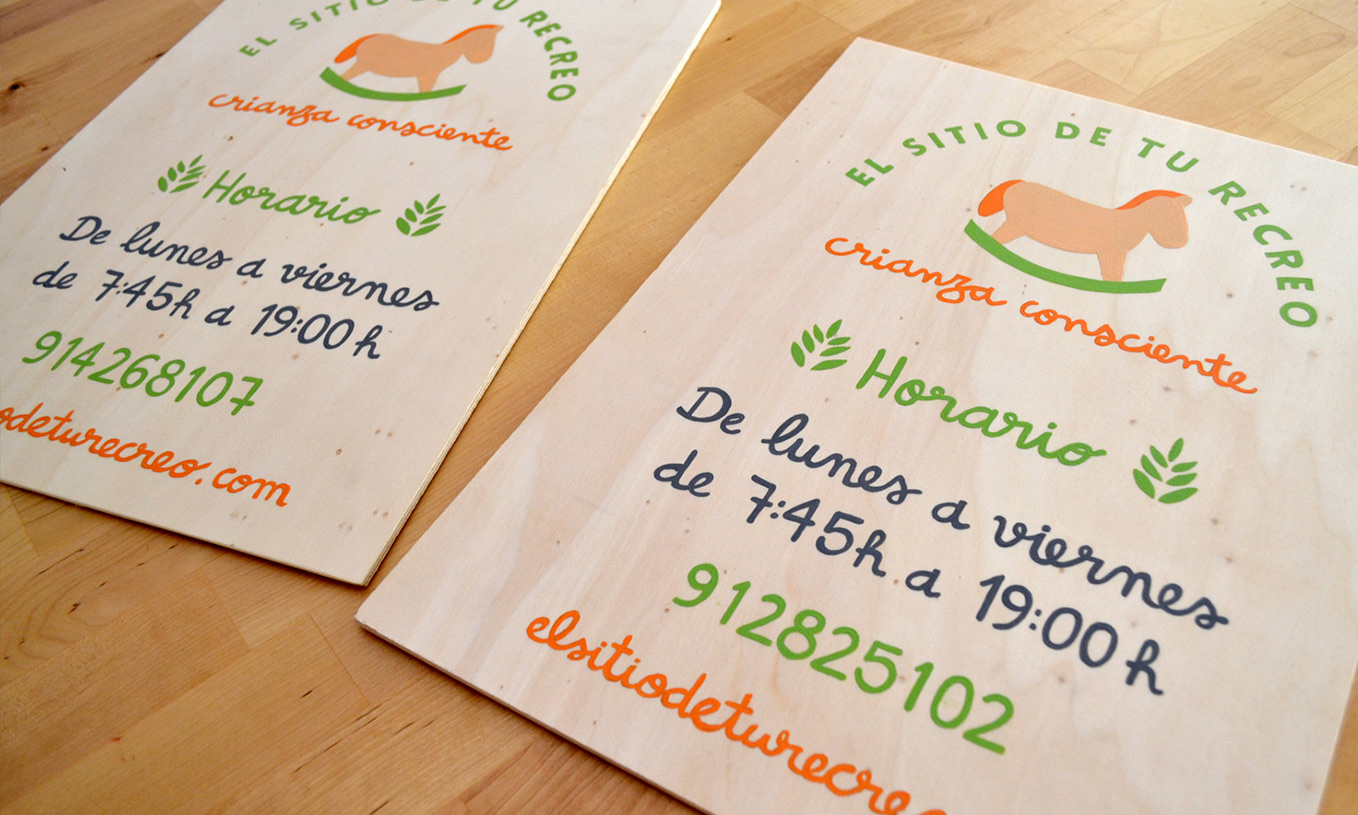 EL SITIO DE TU RECREO
crianza consciente
Horario
De lunes a viernes
de 7:45h a 19:00h
914268107
odeturecreo.com
EL SITIO DE TU RECREO
crianza consciente
Horario
De lunes a viernes
de 7:45h a 19:00h
912825102
elsitiodeturecre